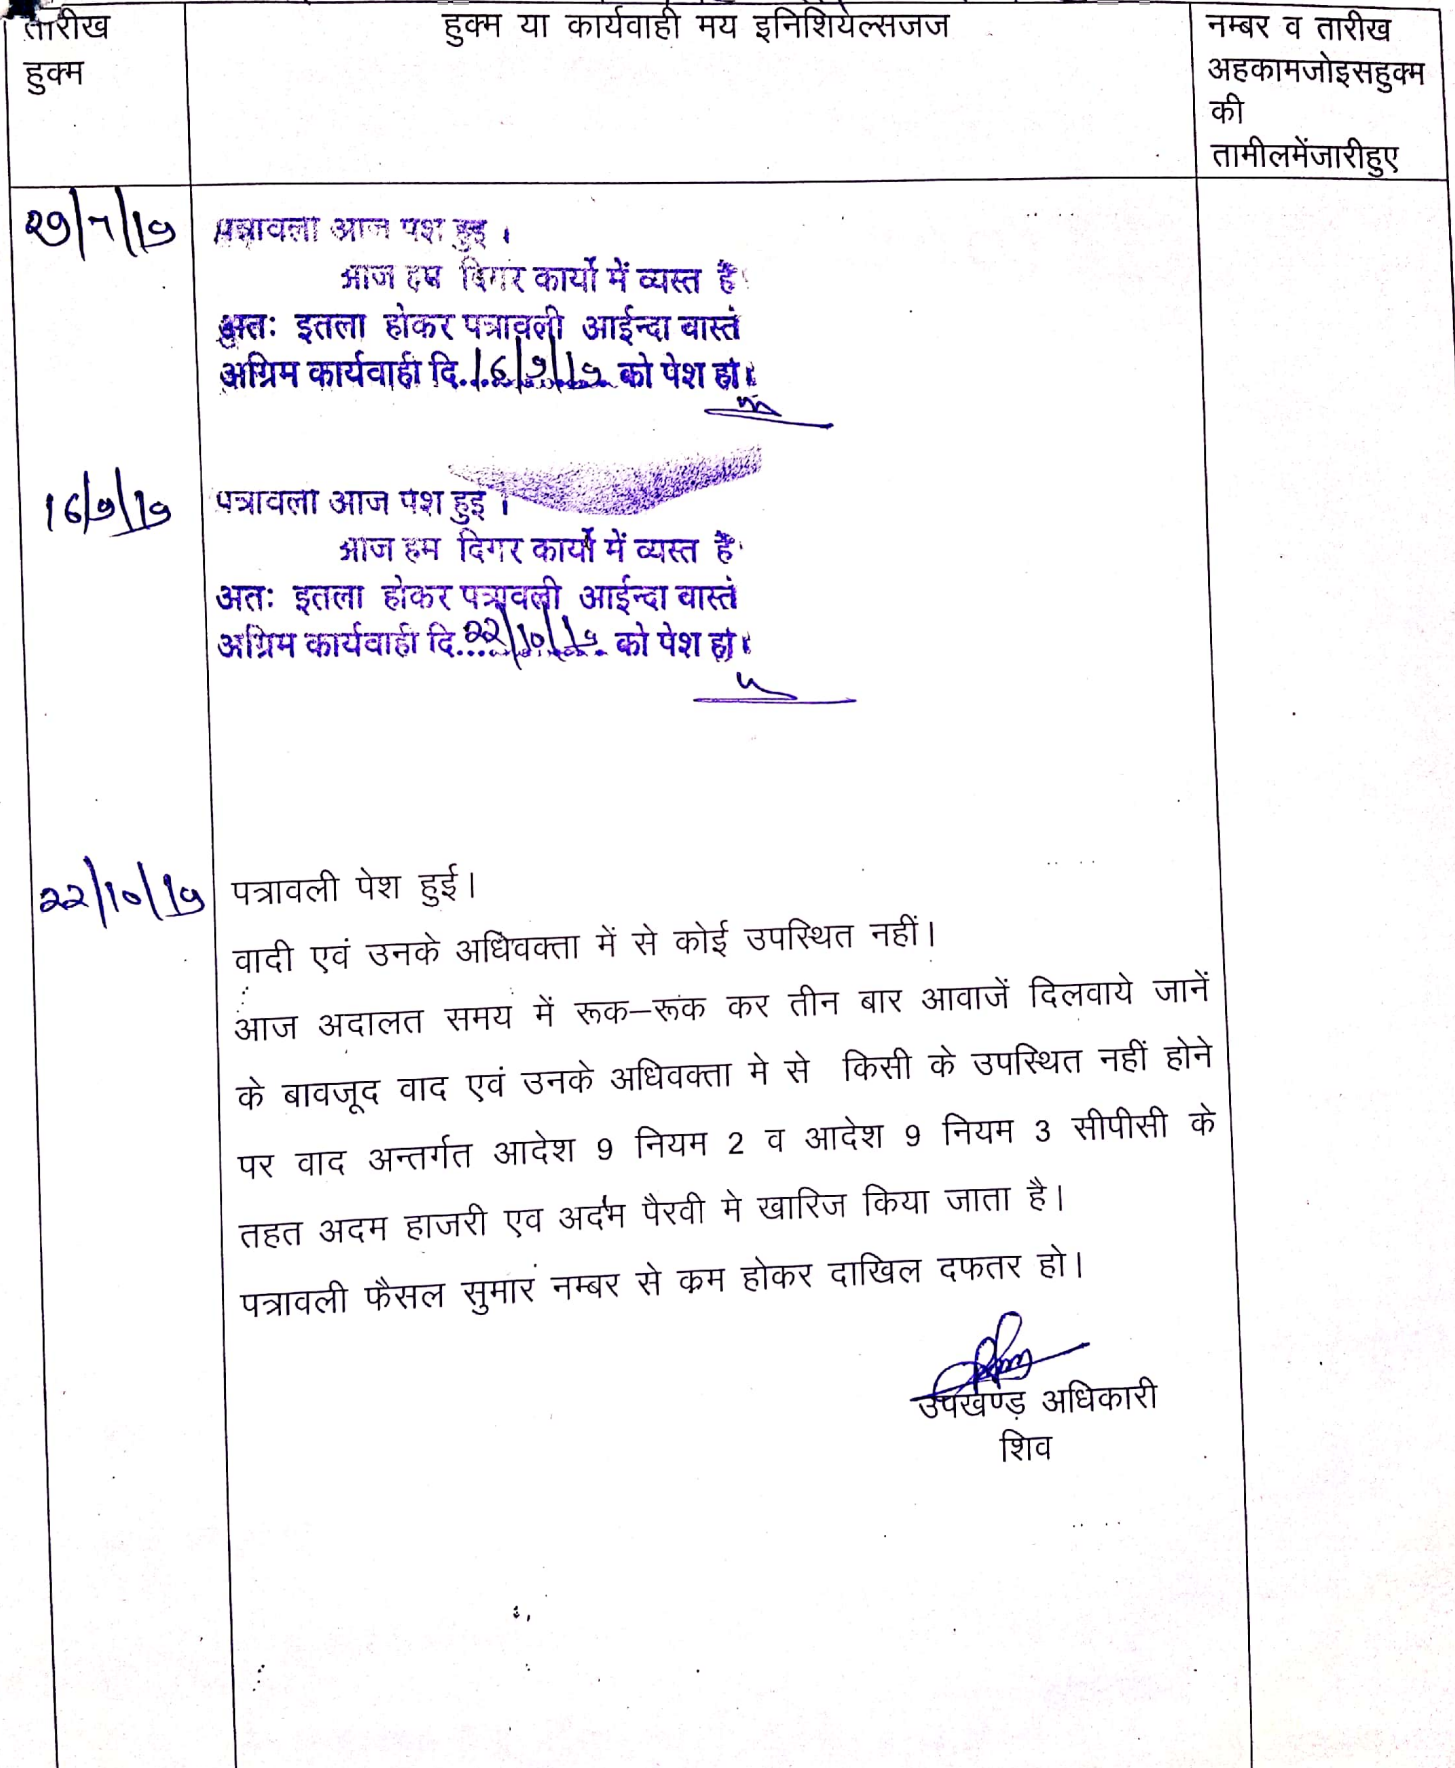 तारीख
हुक्म
हुक्म या कार्यवाही मय इनिशियेल्सजज
नम्बर व तारीख
अहकामजोइसहुक्म
की
तामीलमेंजारीहुए
29/7/19
पत्रावली आज पेश हुई ।
आज हम दिगर कार्यो में व्यस्त है
अतः इतला होकर पत्रावली आईन्दा वास्ते
अग्रिम कार्यवाही दि. 16/9/19 को पेश हो।
16/9/19
पत्रावली आज पेश हुई ।
आज हम दिगर कार्यो में व्यस्त है
अतः इतला होकर पत्रावली आईन्दा वास्ते
अग्रिम कार्यवाही दि. 22/10/19 को पेश हो।
22/10/19
पत्रावली पेश हुई।
वादी एवं उनके अधिवक्ता में से कोई उपस्थित नहीं।
आज अदालत समय में रूक–रूक कर तीन बार आवाजें दिलवाये जानें
के बावजूद वाद एवं उनके अधिवक्ता मे से किसी के उपस्थित नहीं होने
पर वाद अन्तर्गत आदेश 9 नियम 2 व आदेश 9 नियम 3 सीपीसी के
तहत अदम हाजरी एव अदम पैरवी मे खारिज किया जाता है।
पत्रावली फैसल सुमार नम्बर से कम होकर दाखिल दफतर हो।
उपखण्ड़ अधिकारी
शिव